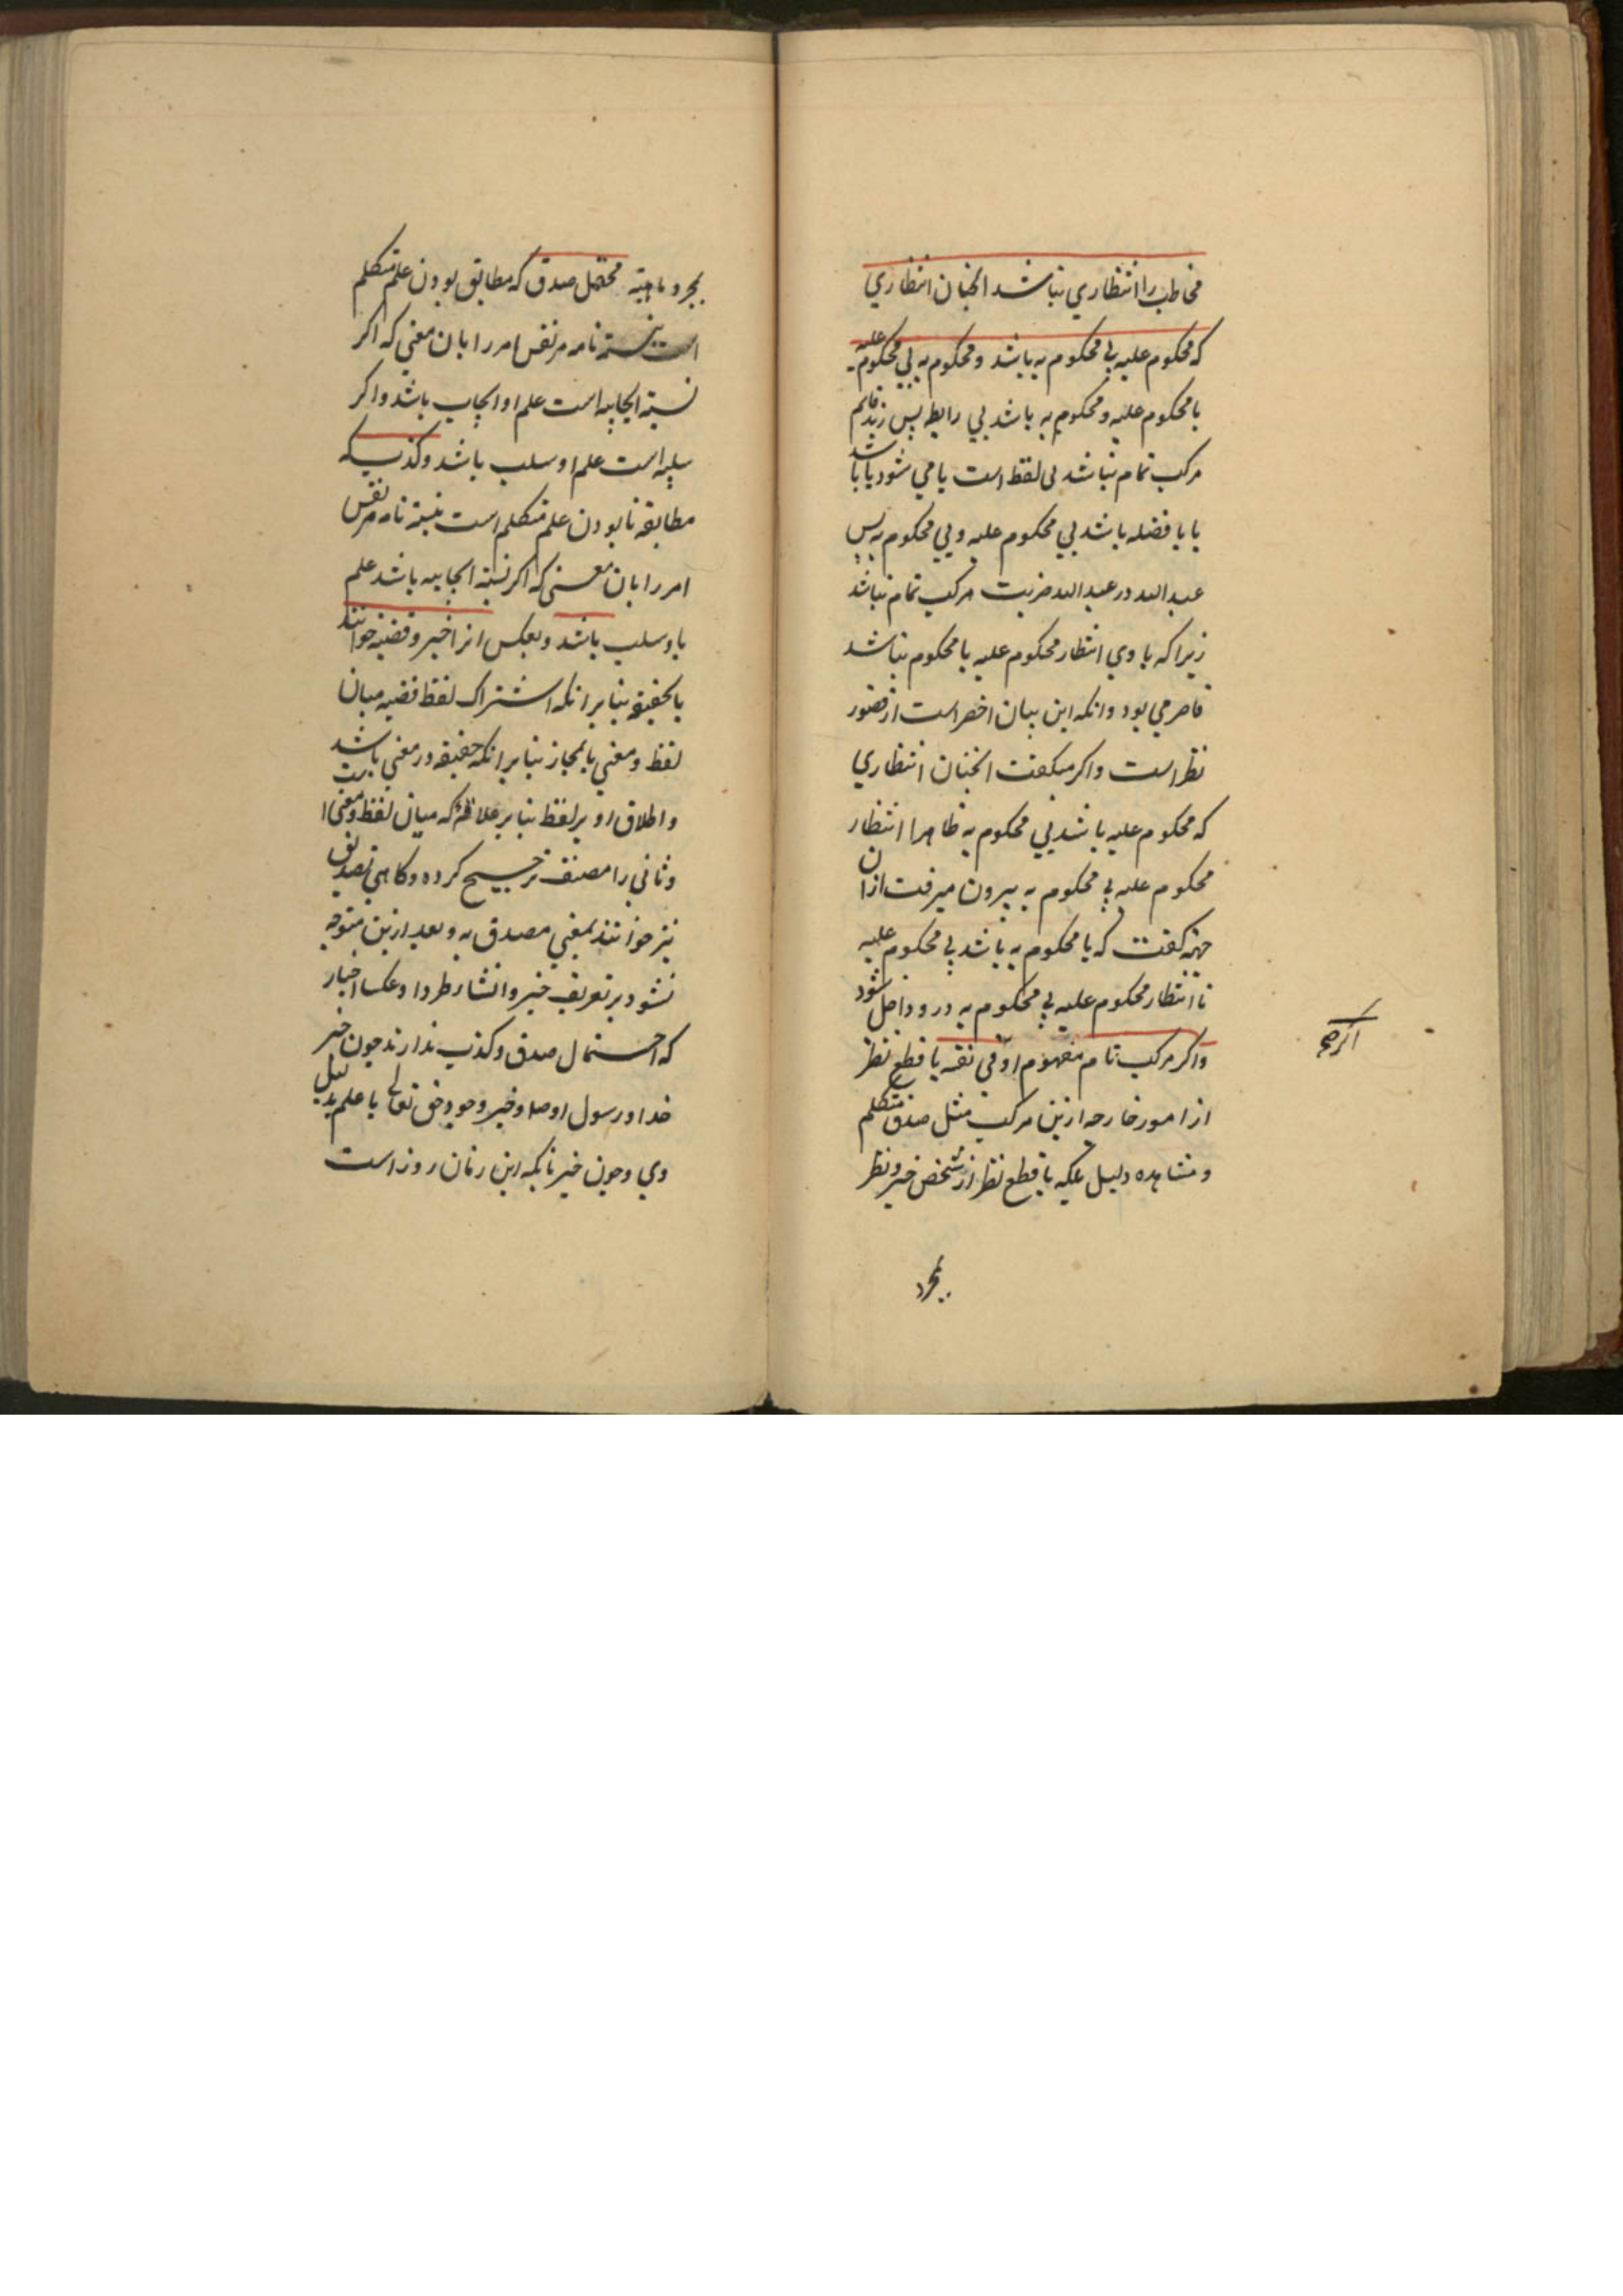 مخاطب را انتظاري نباشد انچنان انتظاري
كه محكوم عليه بي محكوم به باشد و محكوم به بي محكوم عليه
با محكوم عليه و محكوم به باشد بي رابطه پس زيد قايم
مركب تمام نباشد بي لفظ است يا مي شود يا باشد
يا با فضله باشد بي محكوم عليه و بي محكوم به پس
عبد الله در عبد الله ضربت مركب تمام نباشد
زيرا كه با وي انتظار محكوم عليه يا محكوم نباشد
قاصر مي بود و انكه اين بيان اخصر است از قصور
نظر است و اكر ميكفت انچنان انتظاري
كه محكوم عليه باشد بي محكوم به ظاهرا انتظار
محكوم عليه بي محكوم به بيرون ميرفت ازان
جهة كفت كه يا محكوم به باشد بي محكوم عليه
تا انتظار محكوم عليه بي محكوم به درو داخل شود
و اكر مركب تام مفهوم او في نفسه با قطع نظر
از امور خارجه ازين مركب مثل صدق متكلم
و مشاهده دليل بلكه با قطع نظر از شخص خبر و نظر
بمجرد
بمجرد ماهيته محتمل صدق كه مطابق بودن علم متكلم
است بنسبة تامه مر نفس امر را بان معني كه اكر
نسبة ايجابيه است علم او ايجاب باشد و اكر
سلبيه است علم او سلب باشد و كذب كه
مطابقه نابودن علم متكلم است بنسبة تامه مر نفس
امر را بان معني كه اكر نسبة ايجابيه باشد علم
باو سلب باشد و بعكس انرا خبر و قضيه خوانند
يا بحقيقة بنابر انكه اشتراك لفظ قضيه ميان
لفظ و معني يا بمجاز بنابر انكه حقيقة در معني باشد
و اطلاق او بر لفظ بنابر علاقه كه ميان لفظ و معني است
و ثاني را مصنف ترجيح كرده و كاهي تصديق
نيز خوانند بمعني مصدق به و بعد ازين متوجه
نشود بر تعريف خبر و انشا طردا و عكسا اخبار
كه احتمال صدق و كذب ندارند چون خبر
خدا و رسول او و خبر وجود حق تعالي با علم بدليل
وي و چون خبر بانكه اين زمان روز است